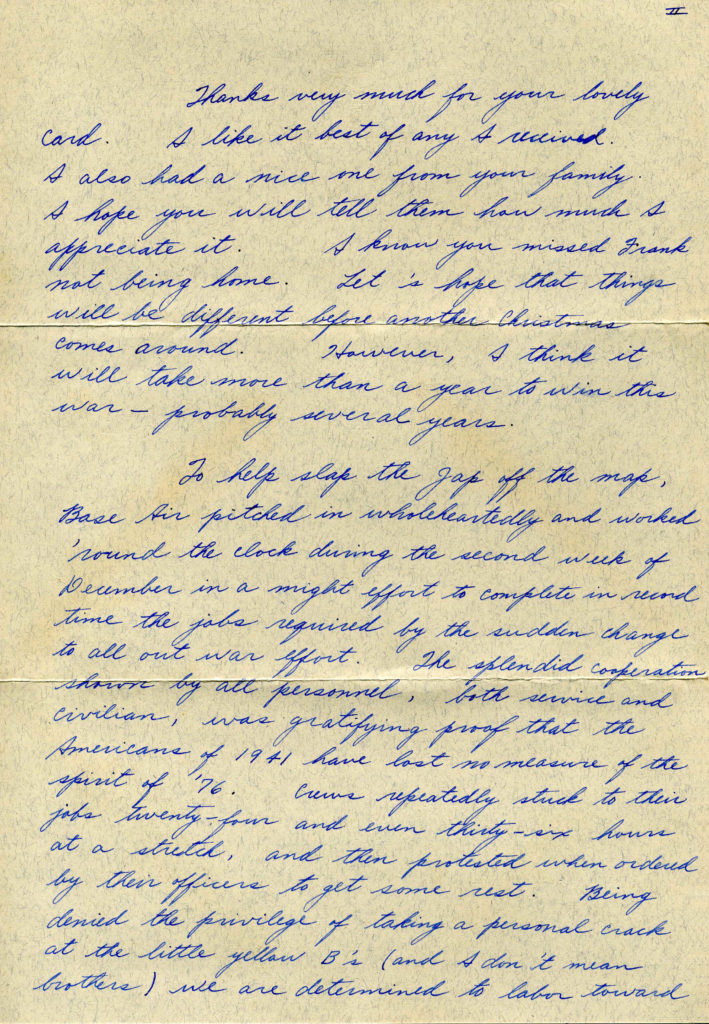 II
Thanks very much for your lovely
card. I like it best of any I received.
I also had a nice one from your family.
I hope you will tell them how much I
appreciate it. I know you missed Frank
not being home. Let's hope that things
will be different before another Christmas
comes around. However, I think it
will take more than a year to win this
war – probably several years.
To help slap the Jap off the map,
Base Air pitched in wholeheartedly and worked
'round the clock during the second week of
December in a might effort to complete in record
time the jobs required by the sudden change
to all out war effort. The splendid cooperation
shown by all personnel, both service and
civilian, was gratifying proof that the
Americans of 1941 have lost no measure of the
spirit of '76. Crews repeatedly stuck to their
jobs twenty-four and even thirty-six hours
at a stretch, and then protested when ordered
by their officers to get some rest. Being
denied the privilege of taking a personal crack
at the little yellow B's (and I don't mean
brothers) we are determined to labor toward